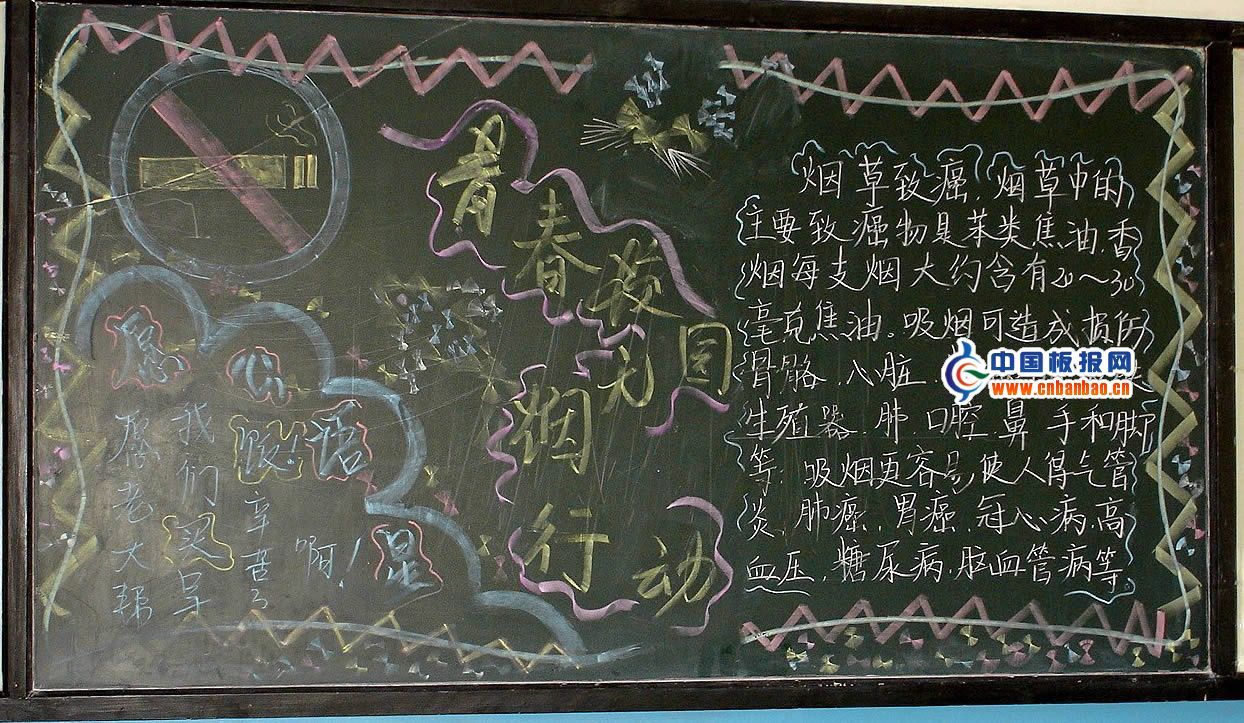 青春校园
无烟行动
愿心语星
愿老大帮
我们买早
饭！辛苦了
啊！
烟草致癌，烟草中的
主要致癌物是苯类焦油，香
烟每支烟大约含有20～30
毫克焦油。吸烟可造成损伤
骨骼、心脏、
生殖器、肺、口腔、鼻、手和脚
等。吸烟更容易使人得气管
炎、肺癌、胃癌、冠心病、高
血压、糖尿病、脑血管病等。
中国板报网
www.cnbanbao.cn